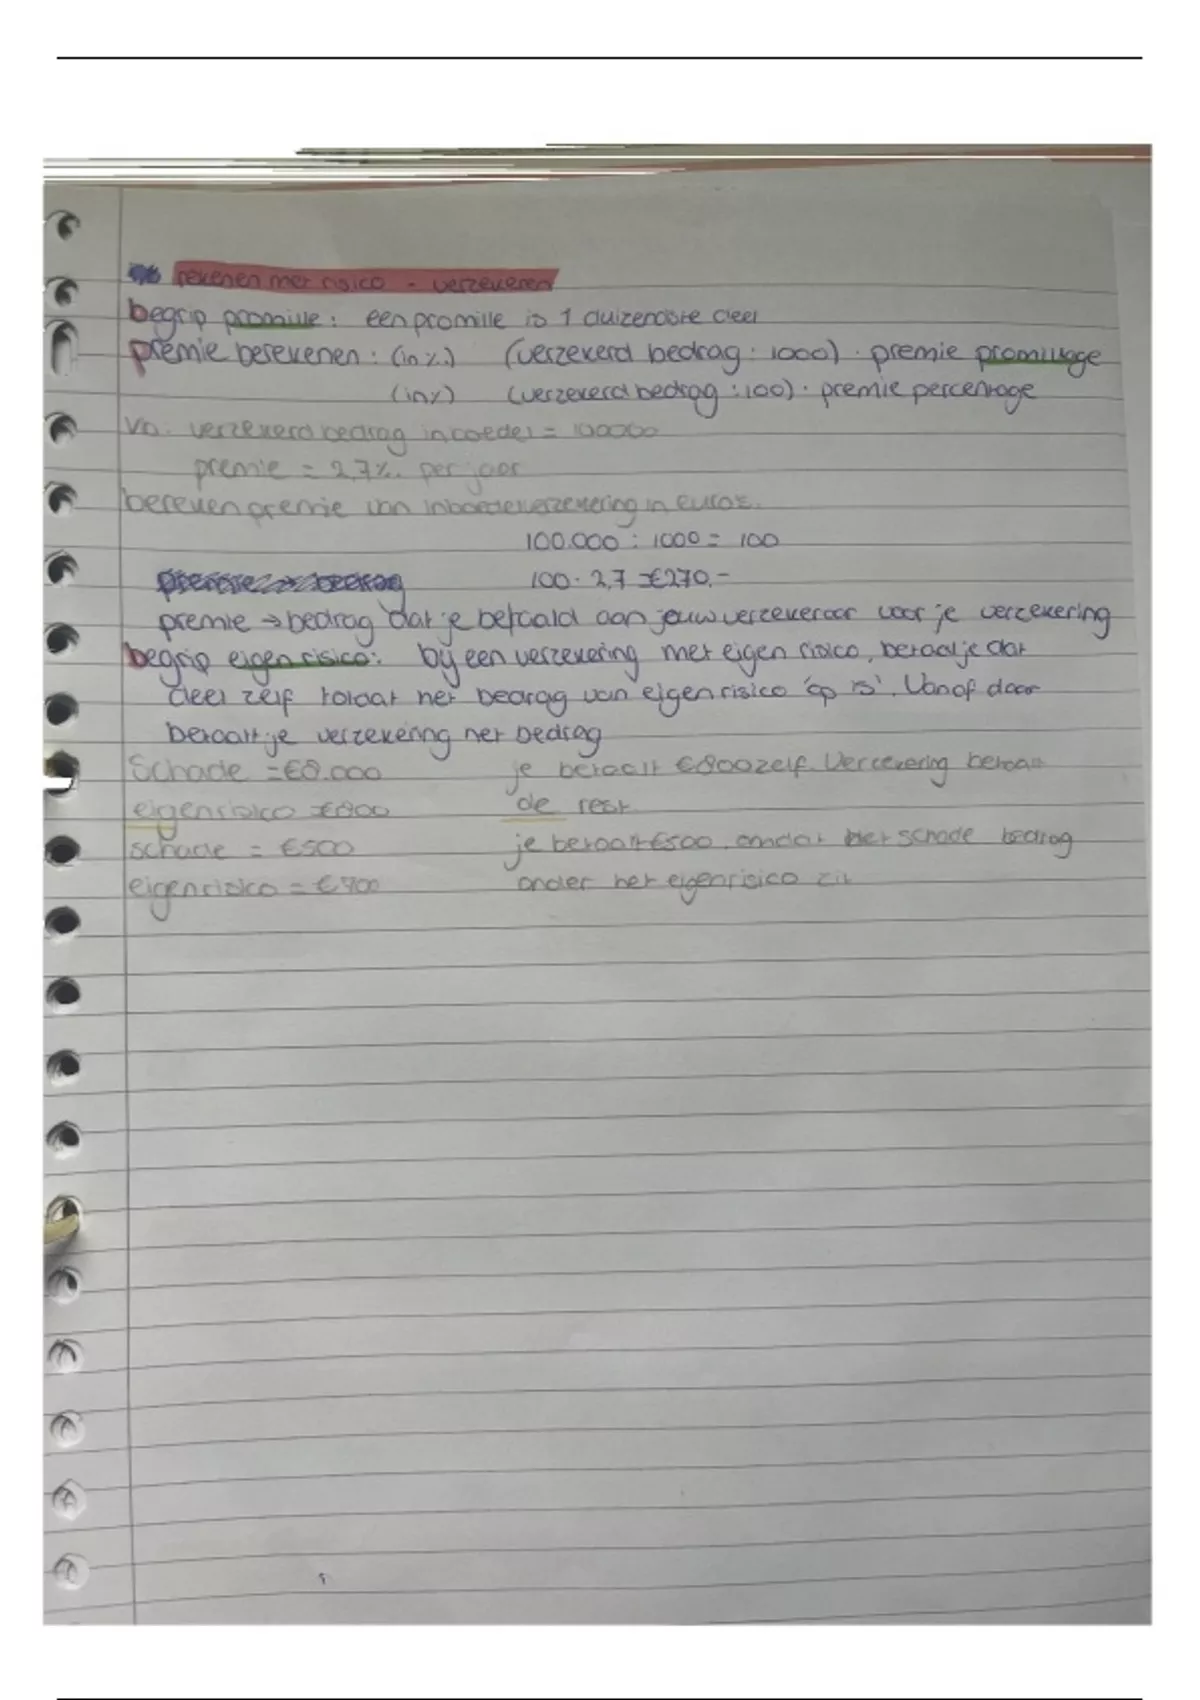 rekenen met risico - verzekeren
begrip promille: een promille is 1 duizendste deel
premie berekenen: (in ‰) (verzekerd bedrag : 1000) · premie promillage
(in %) (verzekerd bedrag : 100) · premie percentage
Vb: verzekerd bedrag inboedel = 100000
premie = 2,7‰ per jaar
bereken premie van inboedelverzekering in euro's.
100.000 : 1000 = 100
100 · 2,7 = €270,-
premie → bedrag dat je betaald aan jouw verzekeraar voor je verzekering
begrip eigen risico: bij een verzekering met eigen risico, betaal je dat
deel zelf totdat het bedrag van eigen risico 'op is'. Vanaf daar
betaalt je verzekering het bedrag
Schade = €8.000 je betaalt €800 zelf. Verzekering betaalt
eigen risico = €800 de rest
schade = €500 je betaalt €500, omdat het schade bedrag
eigen risico = €700 onder het eigen risico zit